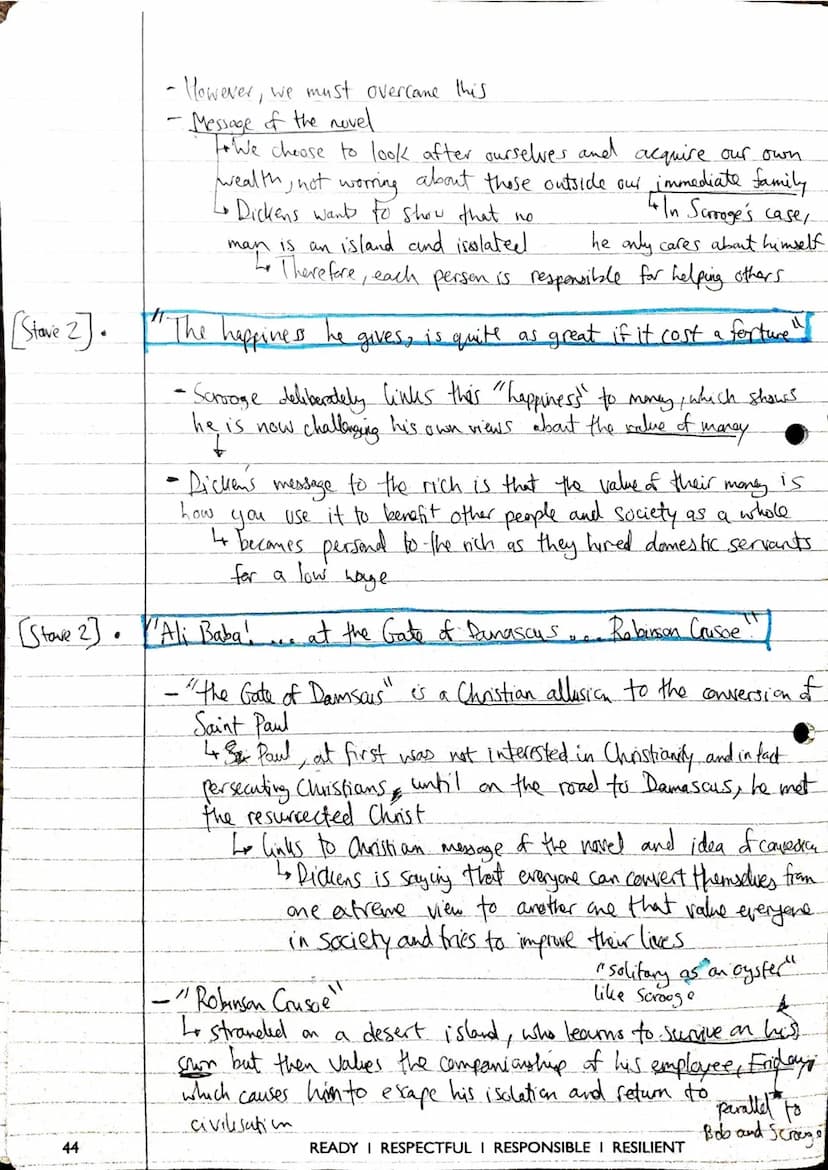 - However, we must overcome this
- Message of the novel
↳ We choose to look after ourselves and acquire our own
wealth, not worring about those outside our immediate family
↳ Dickens wants to show that no
↳ In Scrooge's case,
man is an island and isolated
he only cares about himself
↳ Therefore, each person is responsible for helping others
[Stave 2] •
"The happiness he gives, is quite as great if it cost a fortune"
- Scrooge deliberately links this "happiness" to money, which shows
he is now challenging his own views about the value of money
↓
- Dickens message to the rich is that the value of their money is
how you use it to benefit other people and society as a whole
↳ becomes personal to the rich as they hired domestic servants
for a low wage
[Stave 2] •
"Ali Baba! ... at the Gate of Damascus ... Robinson Crusoe"
- "the Gate of Damsaus" is a Christian allusion to the conversion of
Saint Paul
↳ Paul, at first was not interested in Christianity and in fact
persecuting Christians, until on the road to Damascus, he met
the resurrected Christ
↳ links to Christian message of the novel and idea of
↳ Dickens is saying that everyone can convert themselves from
one extreme view to another one that value everyone
in society and tries to improve their lives
"solitary as an oyster"
like Scrooge
- "Robinson Crusoe"
↳ stranded on a desert island, who learns to survive on his
own but then values the companionship of his employee, Friday,
which causes him to esape his isolation and return to
civilisation
parallel to
Bob and Scrooge
44
READY | RESPECTFUL | RESPONSIBLE | RESILIENT